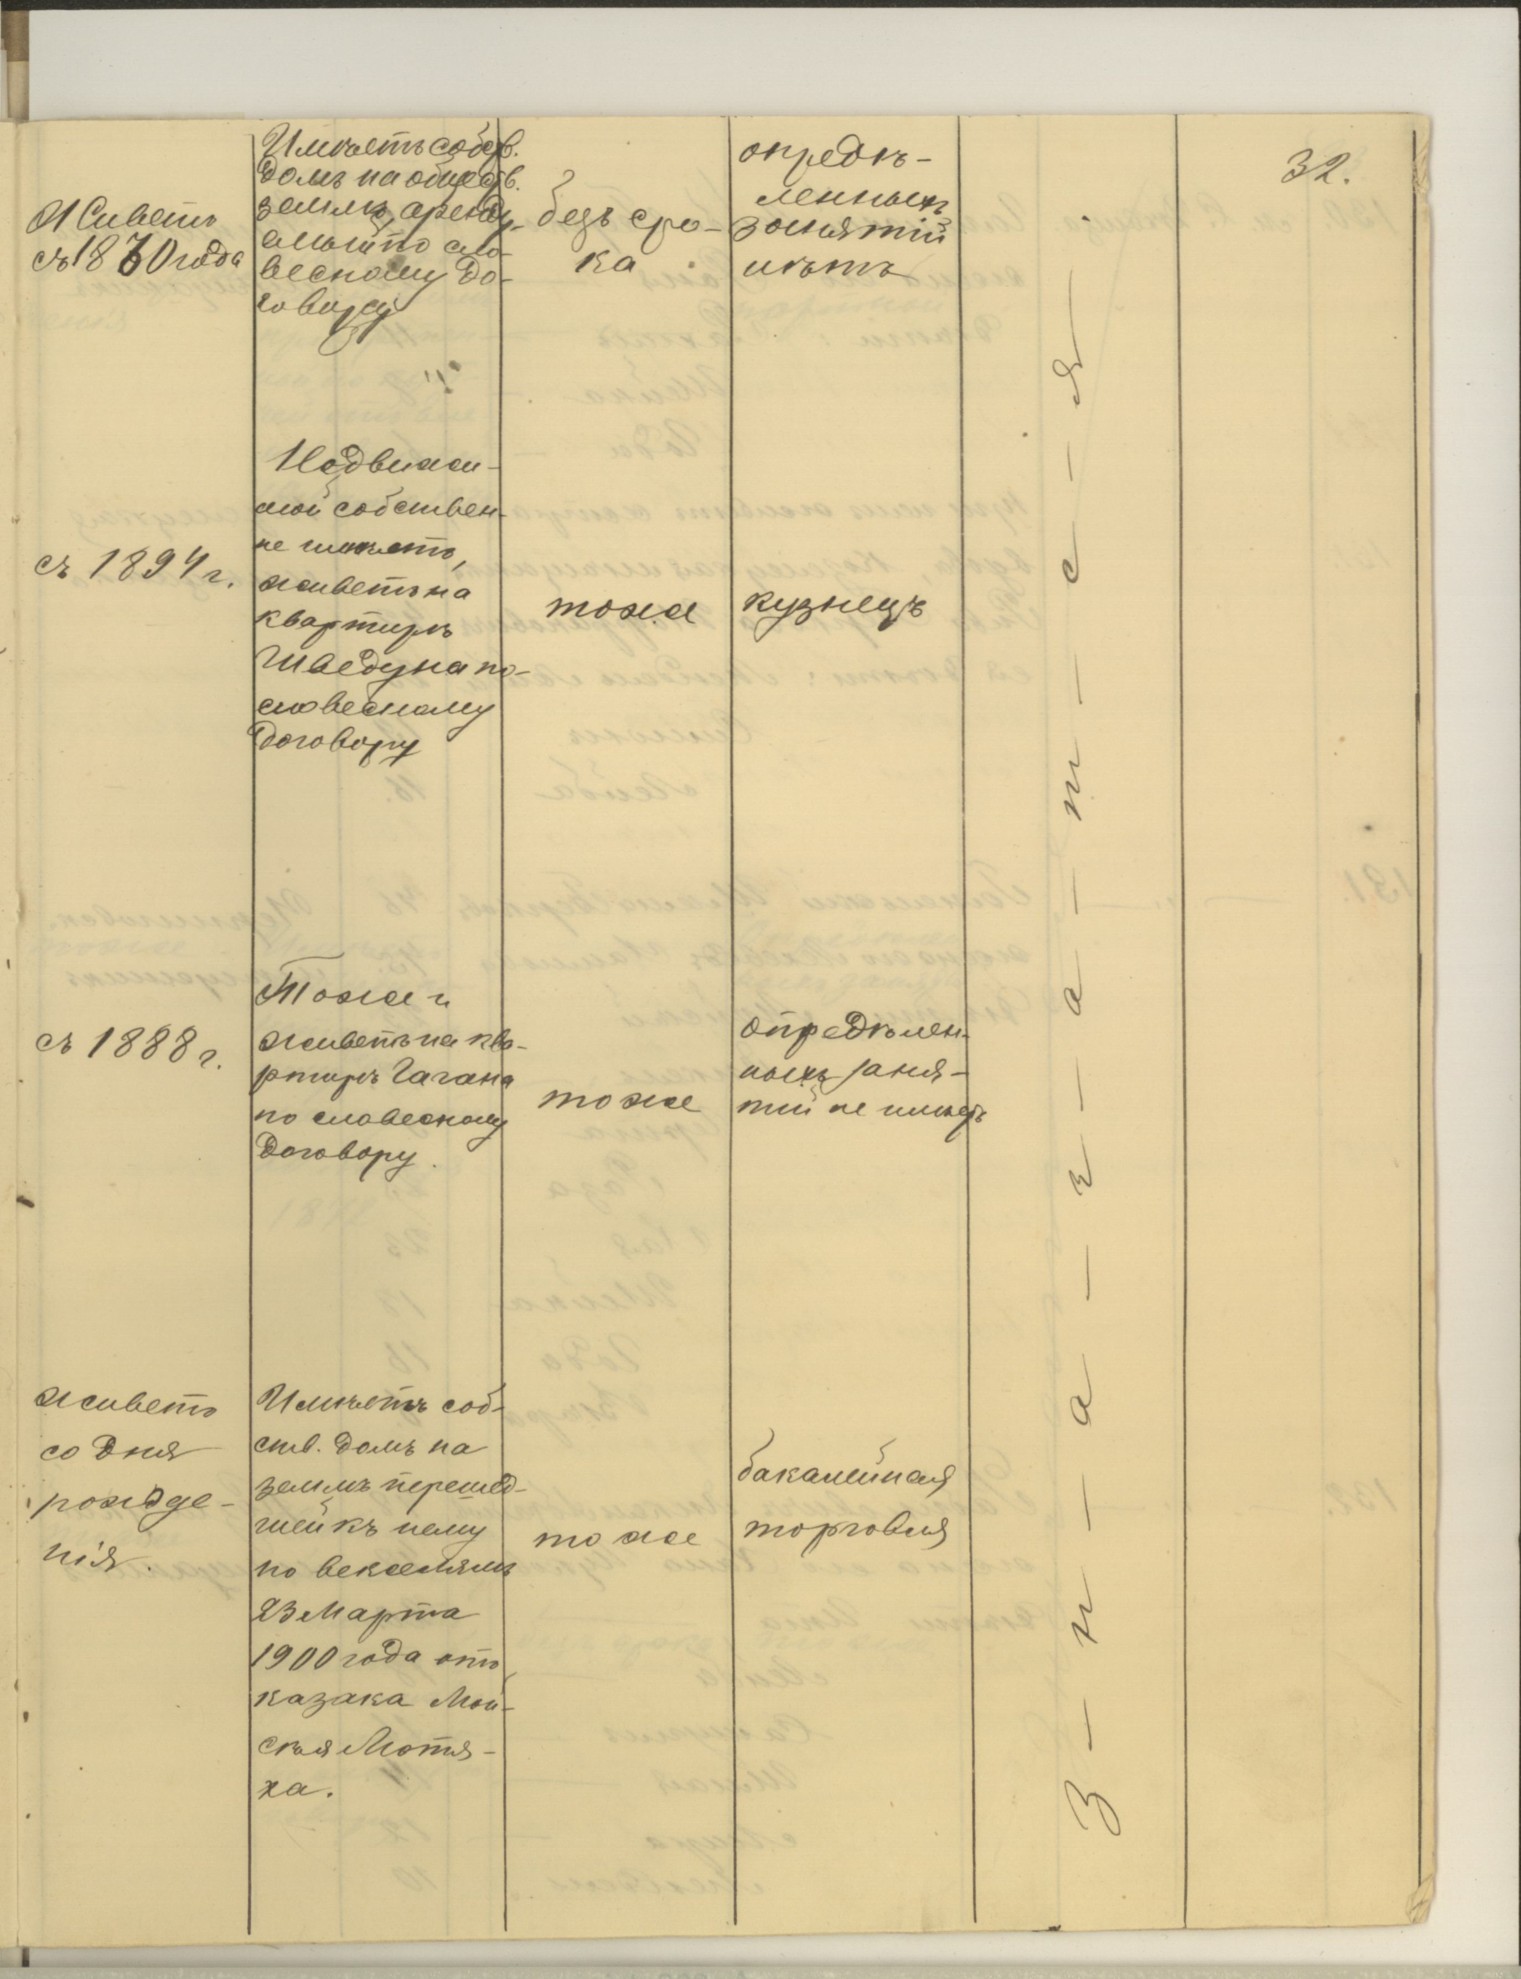 32.
Живетъ
съ 1870 года
Имѣетъ собств.
домъ на обществ.
землѣ, аренду-
емый по сло-
весному до-
говору
безъ сро-
ка
опредѣ-
ленныхъ
занятій
нѣтъ
съ 1894 г.
Недвижи-
мой собствен.
не имѣетъ,
живетъ на
квартирѣ
Шведуна по
словесному
договору
тоже
кузнецъ
съ 1888 г.
Тоже и
живетъ на ква-
ртирѣ Гагана
по словесному
договору.
тоже
опредѣлен-
ныхъ заня-
тій не имѣетъ
живетъ
со дня
рожде-
нія.
Имѣетъ соб-
ств. домъ на
землѣ перешед-
шей къ нему
по векселямъ
23 Марта
1900 года отъ
казака Мои-
сѣя Мотя-
ха.
тоже
бакалейная
торговля
З-н-а-ч-а-т-с-я-